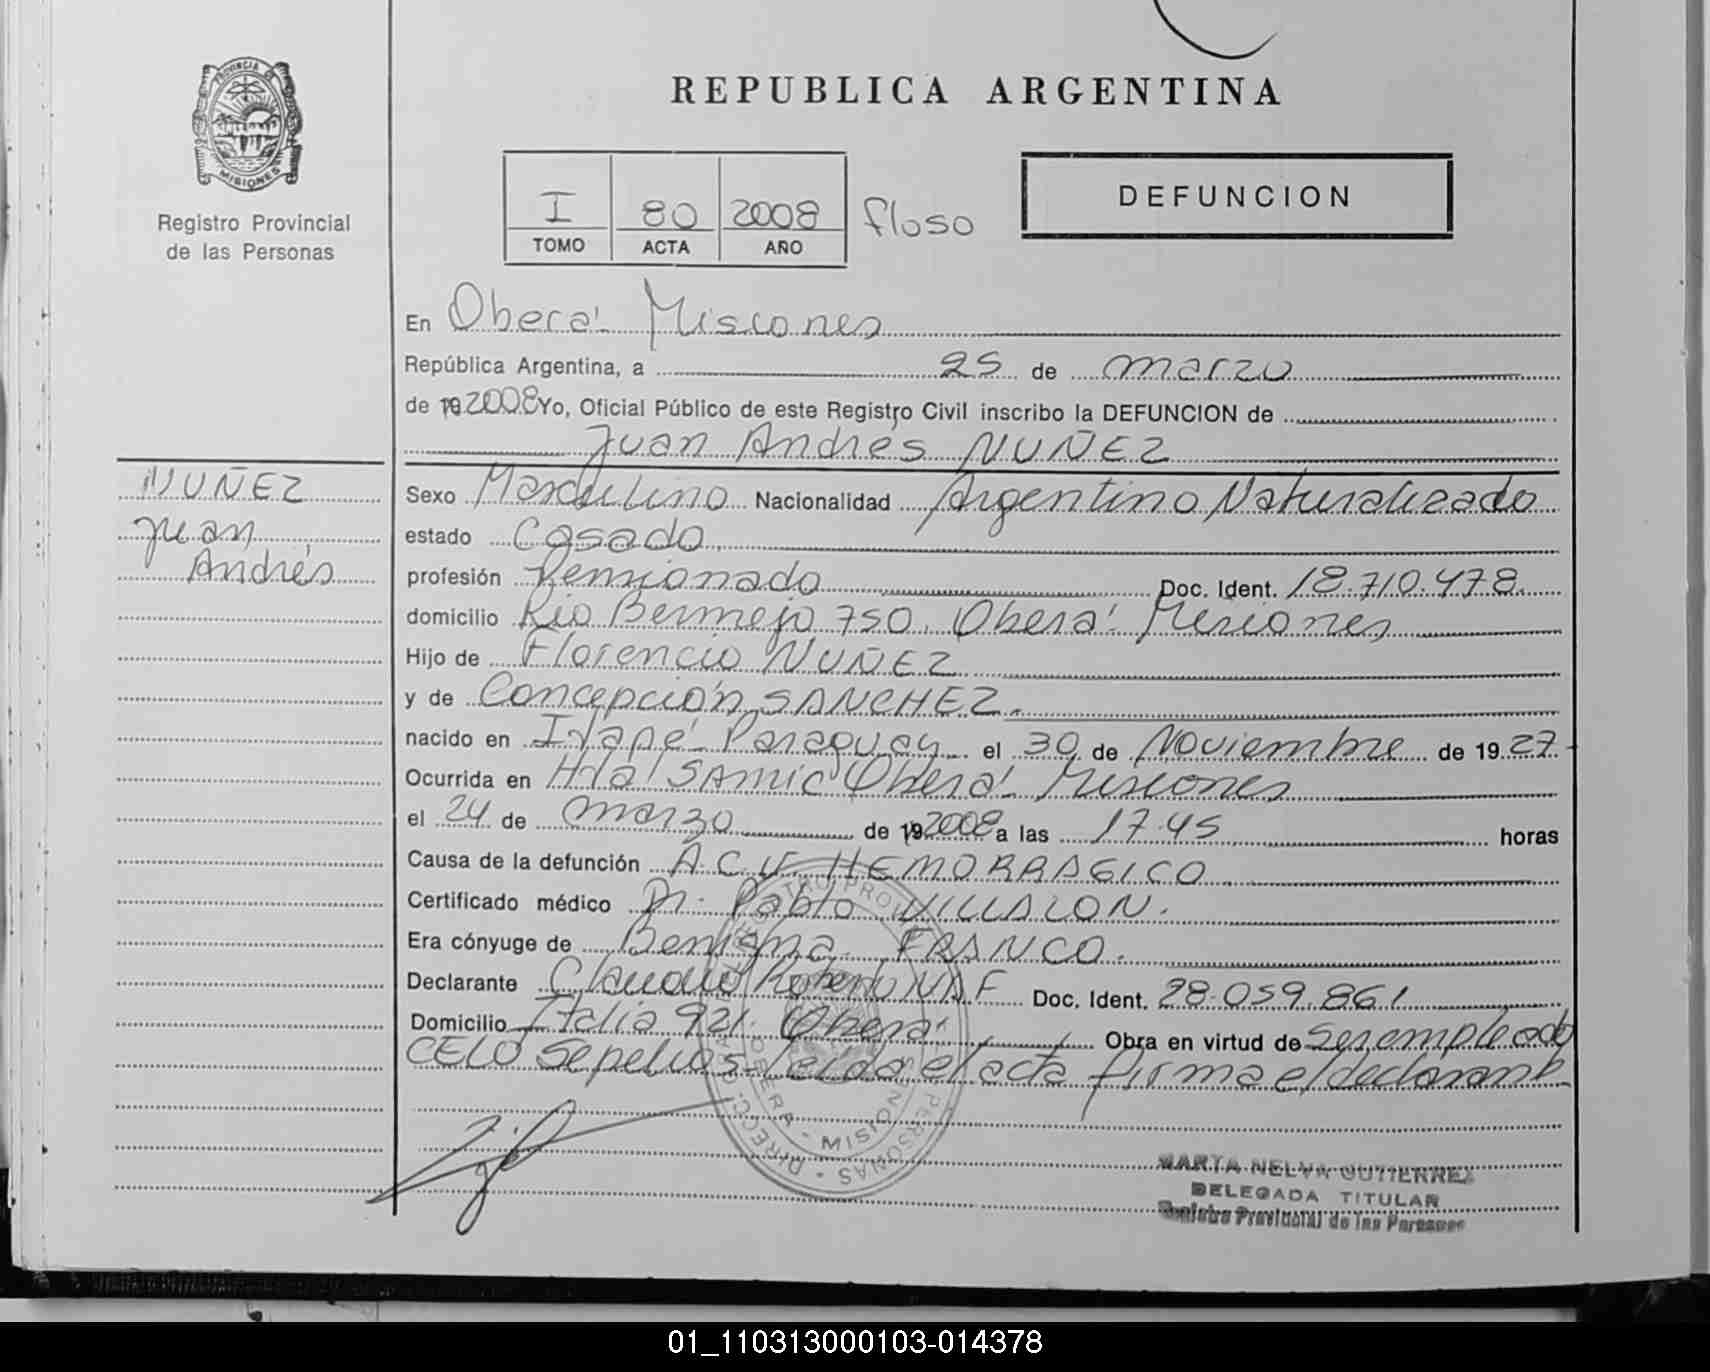 PROVINCIA DE
MISIONES
Registro Provincial
de las Personas
REPUBLICA ARGENTINA
I 80 2008 floso
TOMO ACTA AÑO
DEFUNCION
En Oberá Misiones
República Argentina, a 25 de marzo
de 19 2008 Yo, Oficial Público de este Registro Civil inscribo la DEFUNCION de
Juan Andrés NUÑEZ
NUÑEZ
Juan
Andrés
Sexo Masculino Nacionalidad Argentino Naturalizado
estado Casado
profesión Pensionado Doc. Ident. 18.710.478.
domicilio Río Bermejo 750. Oberá Misiones
Hijo de Florencio NUÑEZ
y de Concepción SANCHEZ.
nacido en Itapé Paraguay el 30 de Noviembre de 1927
Ocurrida en Htal SAMIC Oberá Misiones
el 24 de marzo de 19 2008 a las 17.45 horas
Causa de la defunción A.C.V. HEMORRAGICO
Certificado médico Dr. Pablo VILLALON.
Era cónyuge de Benigna FRANCO.
Declarante Claudio Roberto NAF Doc. Ident. 28.059.861
Domicilio Italia 921. Oberá Obra en virtud de ser empleado
CELO Sepelios- leida el acta firma el declarante
OBERA - MISIONES
MARTA NELVA GUTIERREZ
DELEGADA TITULAR
Registro Provincial de las Personas
01_110313000103-014378